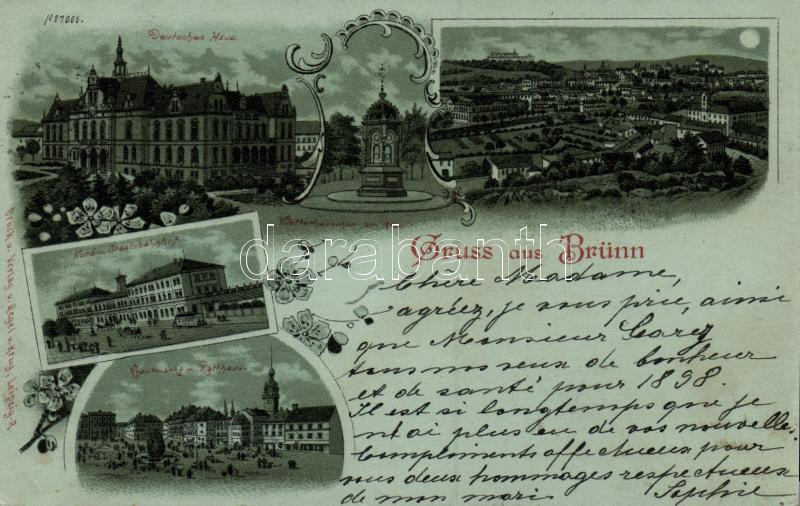 No 7006.
Deutsches Haus.
Gruss aus Brünn
Nord- u. Staatsbahnhof.
Krautmarkt m. Rathhaus.
Druck u. Verlag v. Regel u. Krug, Leipzig-R.
darabanth
Chère Madame,
agréez, je vous prie, ainsi
que Monsieur Czarey
tous nos vœux de bonheur
et de santé pour 1898.
Il est si longtemps que je
n'ai plus eu de vos nouvelles.
Compliments affectueux pour
vous deux hommages respectueux
de mon mari. Sophie